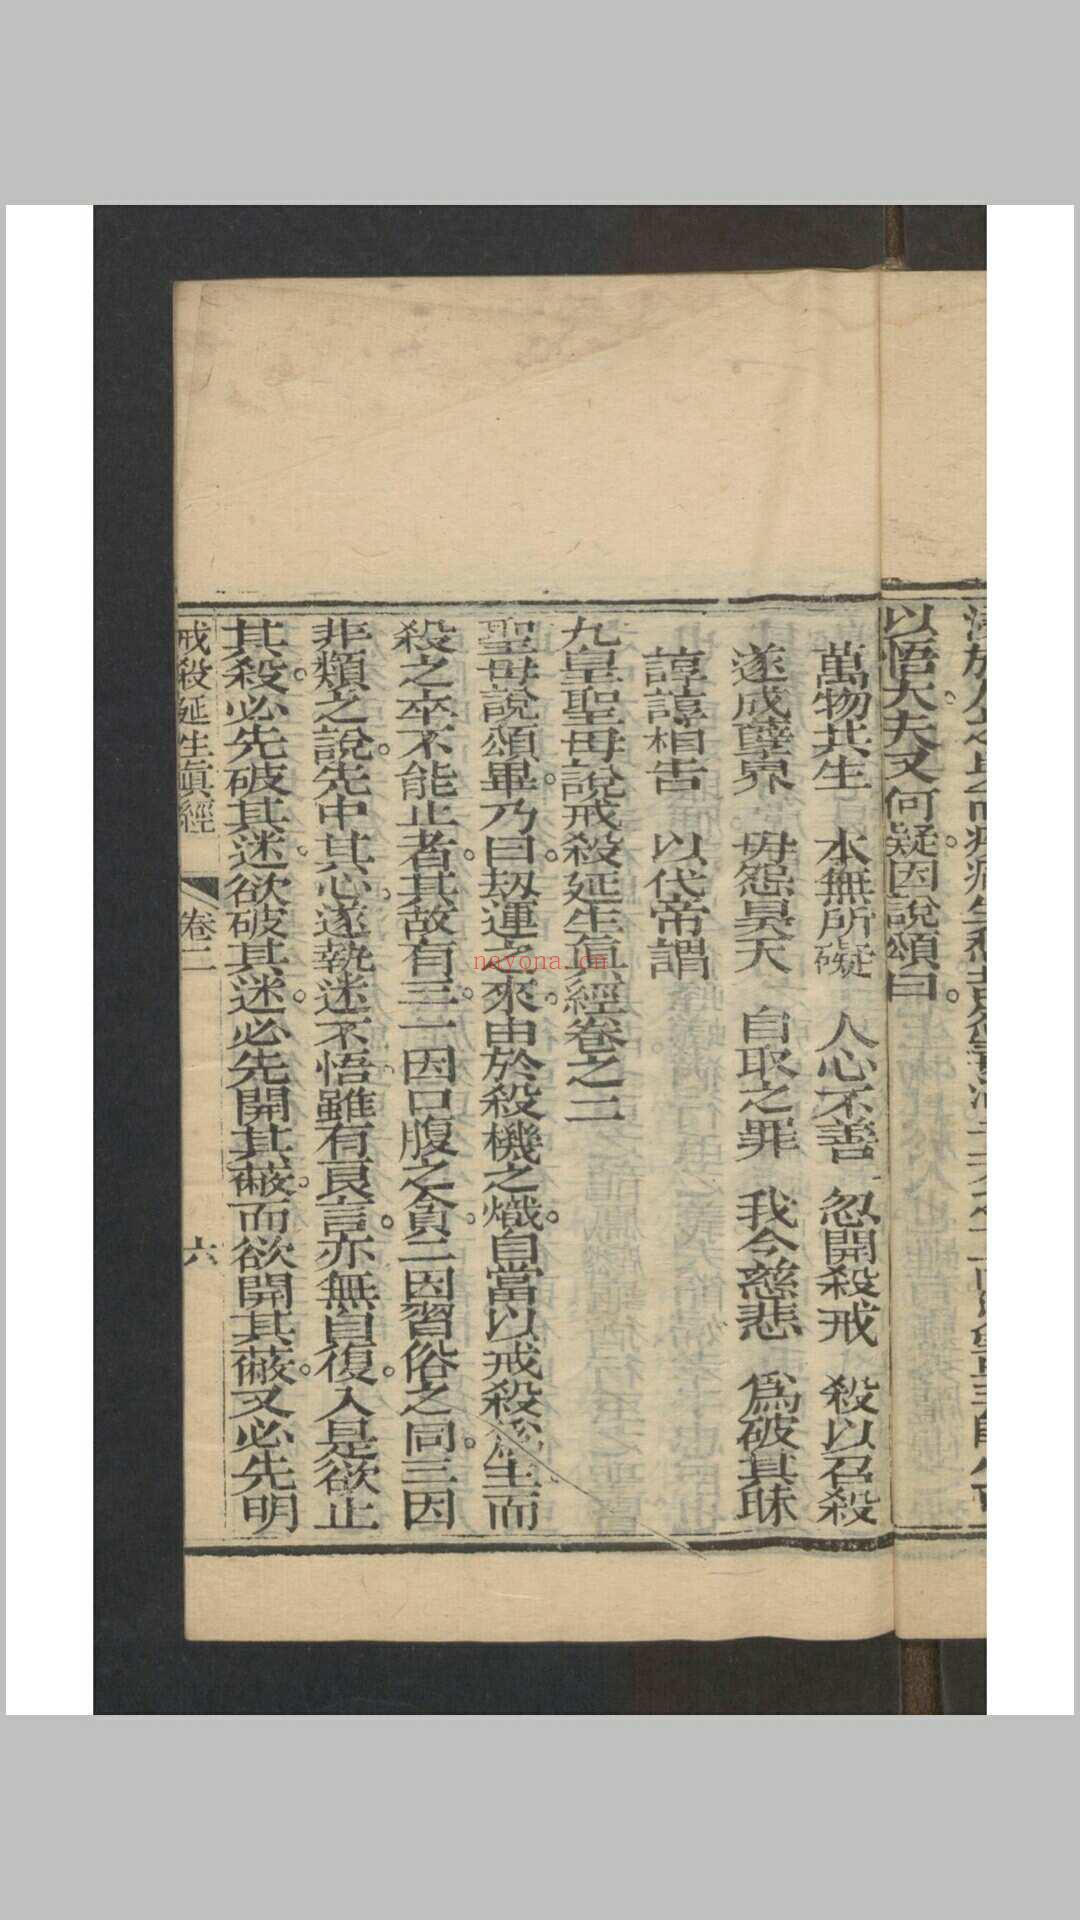 以悟大夫又何疑因說頌曰
萬物共生 本無所礙 人心不善 忽開殺戒 殺以召殺
遂成孽界 毋怨昊天 自取之罪 我今慈悲 為破其昧
諄諄相告 以代帝謂
九皇聖母說戒殺延生真經卷之二
聖母說頌畢乃曰劫運之來由於殺機之熾自當以戒殺為生而
殺之卒不能止者其故有三一因口腹之貪二因習俗之同三因
非類之說先中其心遂執迷不悟雖有良言亦無自復入是欲止
其殺必先破其迷欲破其迷必先開其蔽而欲開其蔽又必先明
戒殺延生真經 卷二 六
nayona.cn